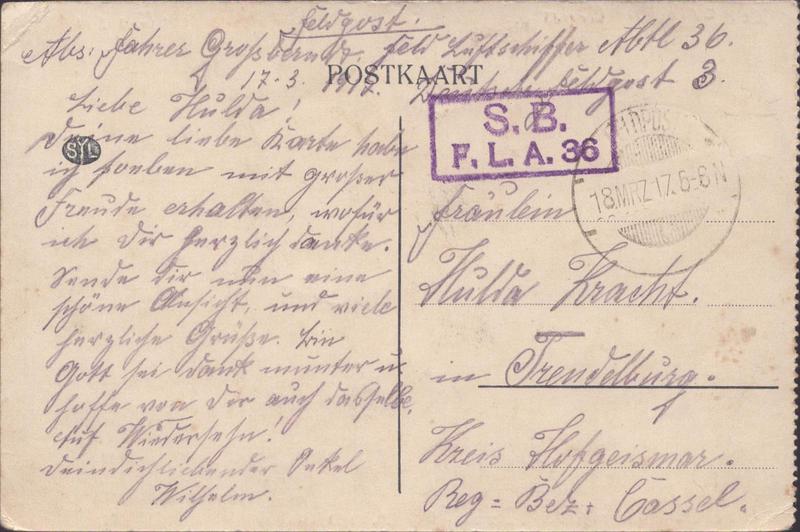 Feldgost.
Abs: Fahrer Großbernd, Feld Luftschiffer Abtl 36.
17.3.1917. Deutsche Feldpost 3.
POSTKAART
Liebe Hulda!
Deine liebe Karte habe
ich soeben mit großer
Freude erhalten, wofür
ich Dir herzlich danke.
Sende dir nun eine
schöne Ansicht, und viele
herzliche Grüße. Bin
Gott sei dank munter u.
hoffe von Dir auch dasselbe.
Auf Wiedersehn!
Deindichliebender Onkel
Wilhelm.
SYL
S. B.
F. L. A. 36
FELDPOST
18 MRZ 17. 5-6 N
Fräulein
Hulda Kracht.
in Trendelburg.
Kreis Hofgeismar.
Reg = Bez. Cassel.